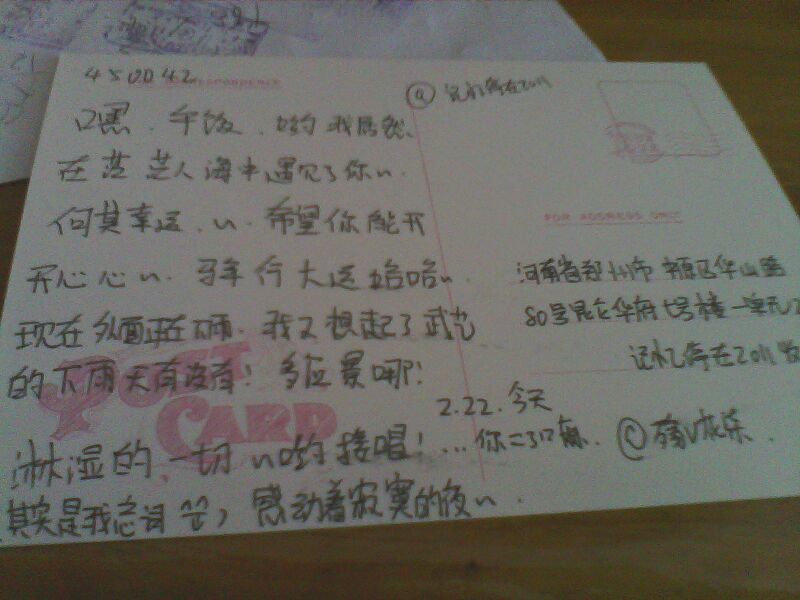 450042
CORRESPONDENCE
@ 记忆停在2011
嘿、午饭、哟 我居然
在茫茫人海中遇见了你~.
何其幸运、~. 希望你能开
开心心~. 马年行大运哈哈~
现在外面正在下雨. 我又想起了武艺
的下雨天有没有! 多应景哪!
淋湿的一切~哟 接唱! ...
其实是我忘词 感动着寂寞的夜~.
POST CARD
FOR ADDRESS ONLY
河南省郑州市 中原区华山路
80号昆仑华府七号楼一单元
记忆停在2011
2.22. 今天